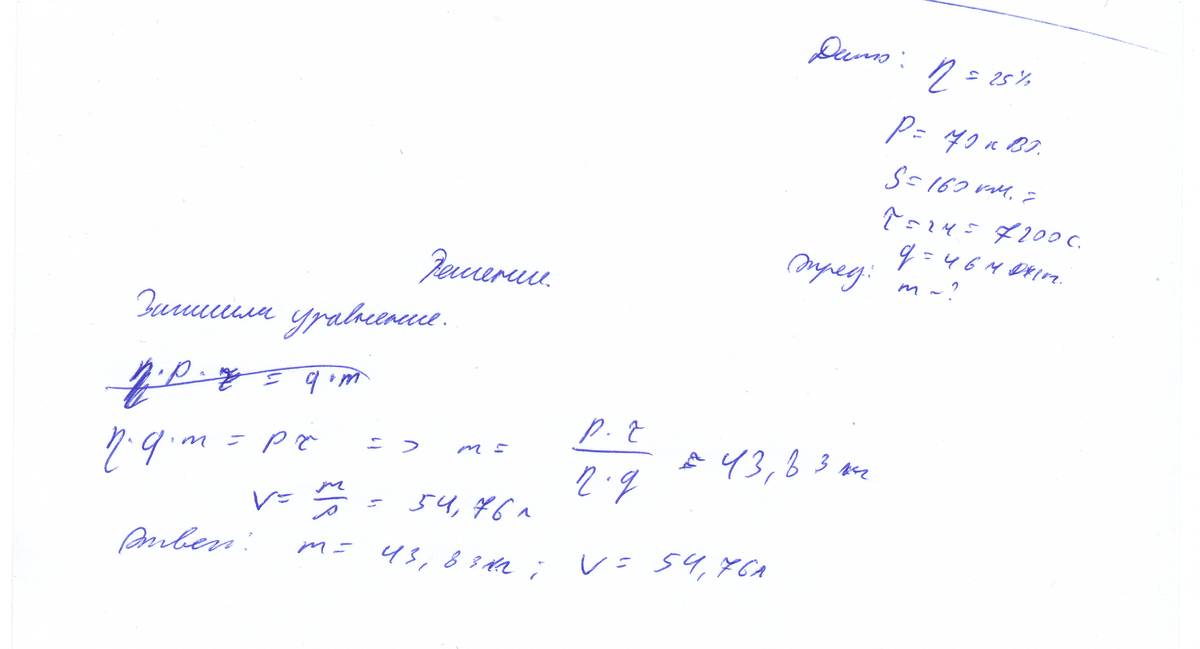 Дано: η = 25%
P = 70 кВт.
S = 160 км. =
τ = 2ч = 7200 с.
q = 46 МДж/кг.
m - ?
Решение.
Запишем уравнение.
η · P · τ = q · m
η · q · m = P τ => m = P · τ / η · q = 43,83 кг
V = m / ρ = 54,76 л
Ответ: m = 43,83 кг; V = 54,76 л